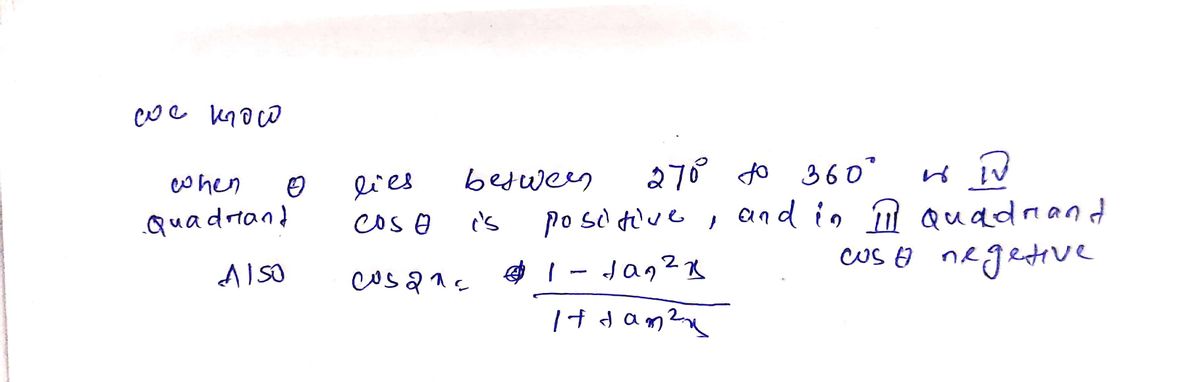 we know
when θ lies between 270° to 360° is IV
quadrant cos θ is positive, and in III quadrant
cos θ negetive
Also cos2x = 1 - tan²x
1 + tan²x